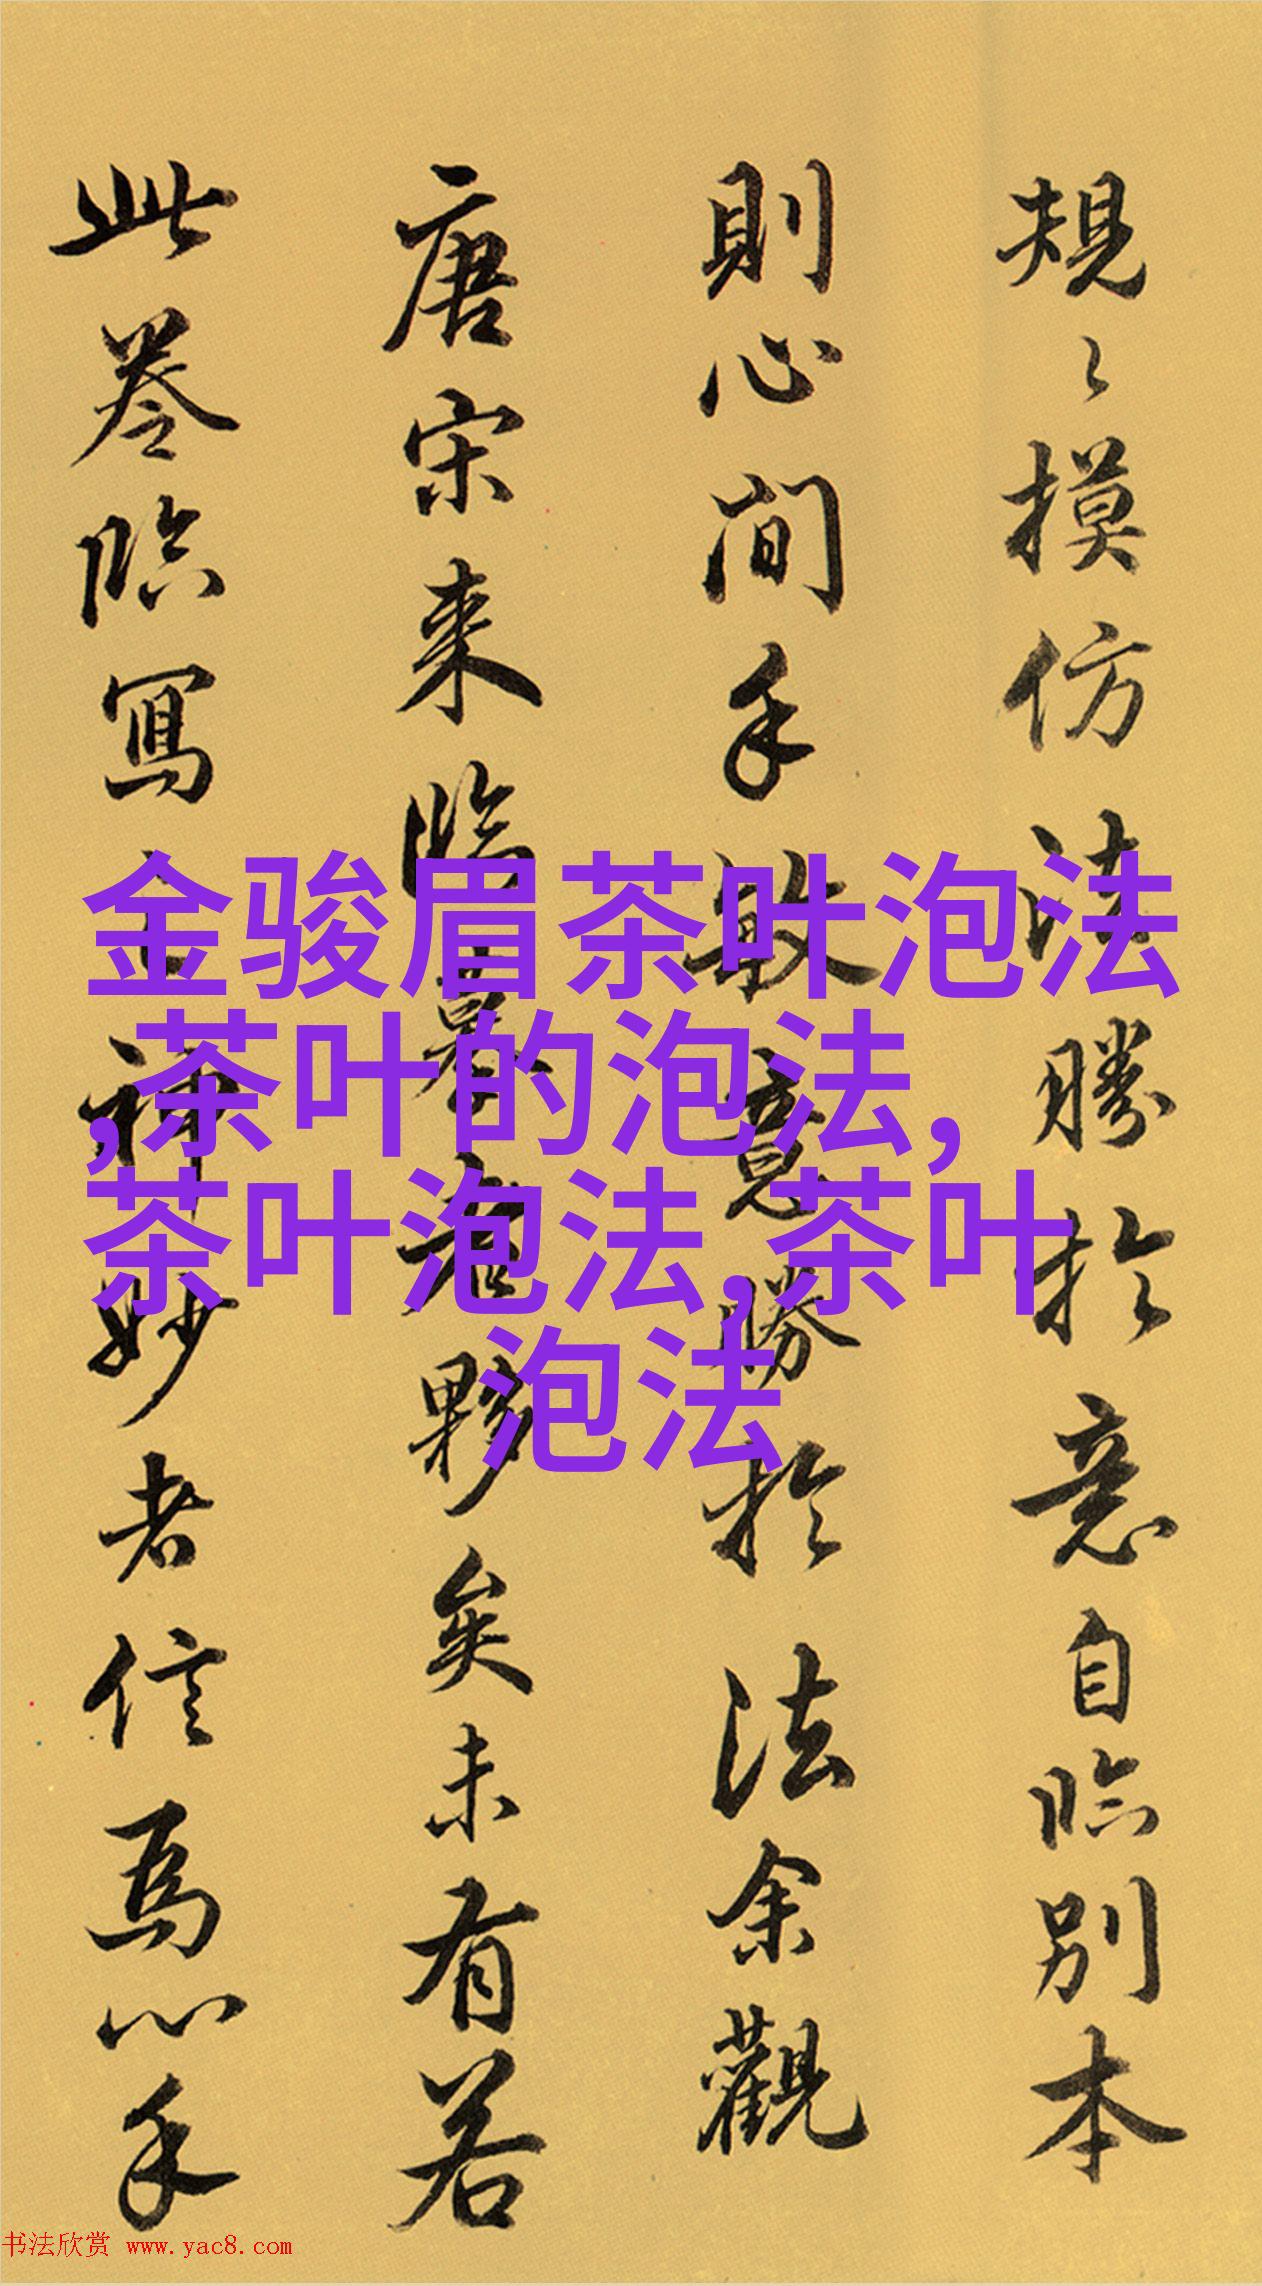 規〻摸仿法勝於意自臨別本
則心閒手敏意勝於法余觀
唐宋来臨摹者夥矣未有若
此卷臨寫
神妙者信爲心手
金骏眉茶叶泡法
,茶叶的泡法,
茶叶泡法,茶叶
泡法
书法欣赏 www.yac8.com